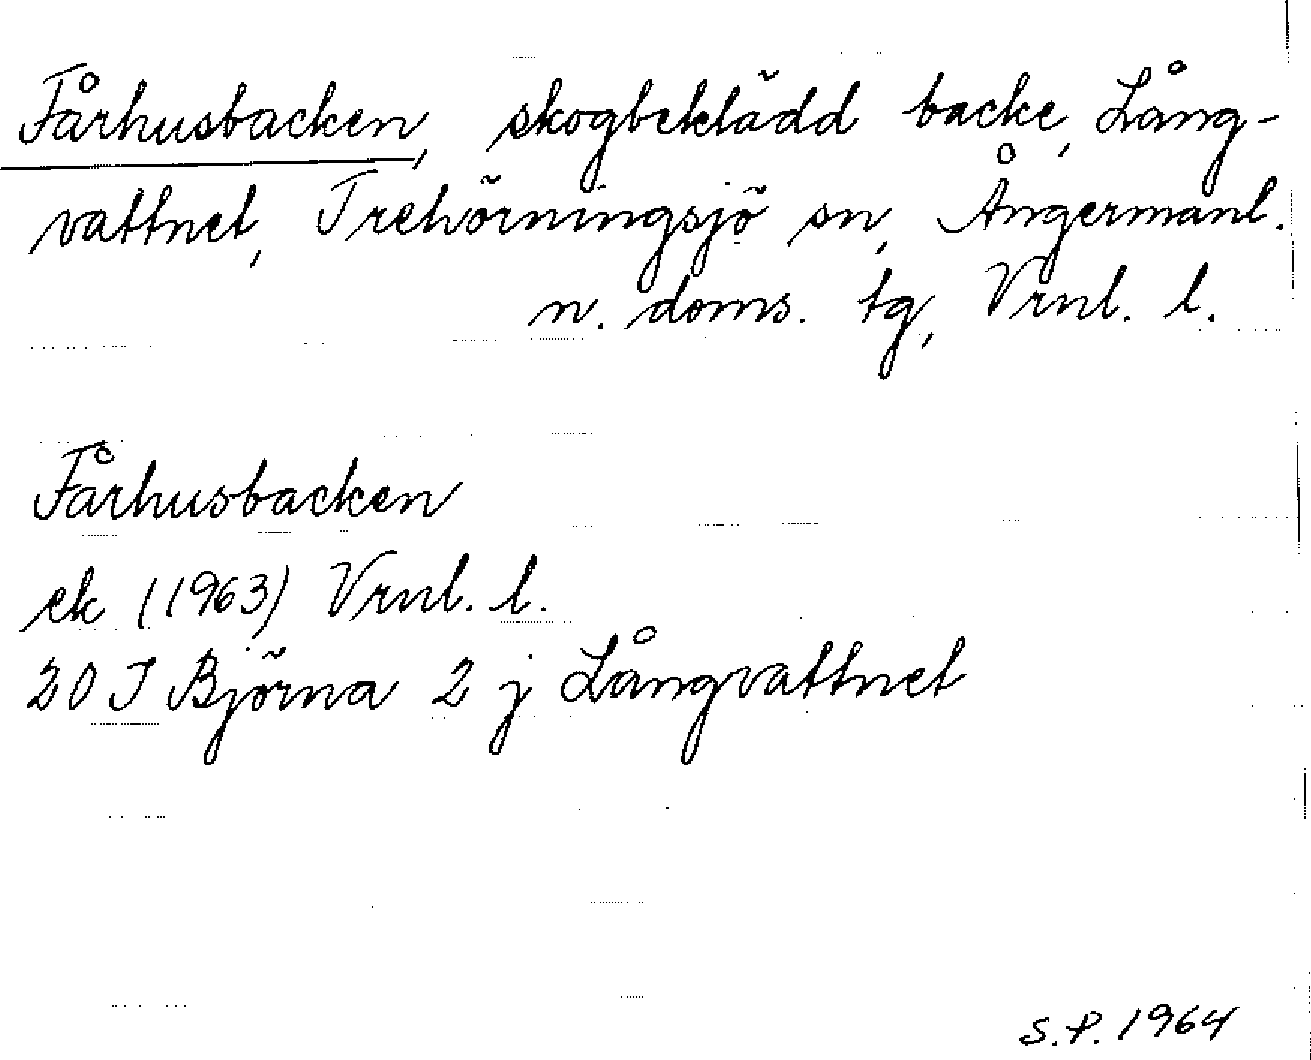 Fårhusbacken, skogbeklädd backe, Lång-
vattnet, Trehörningsjö sn, Ångermanl.
n. doms. tg, Vrnl. l.
Fårhusbacken
ek (1963) Vrnl. l.
20 I Björna 2 j Långvattnet
S.P. 1964